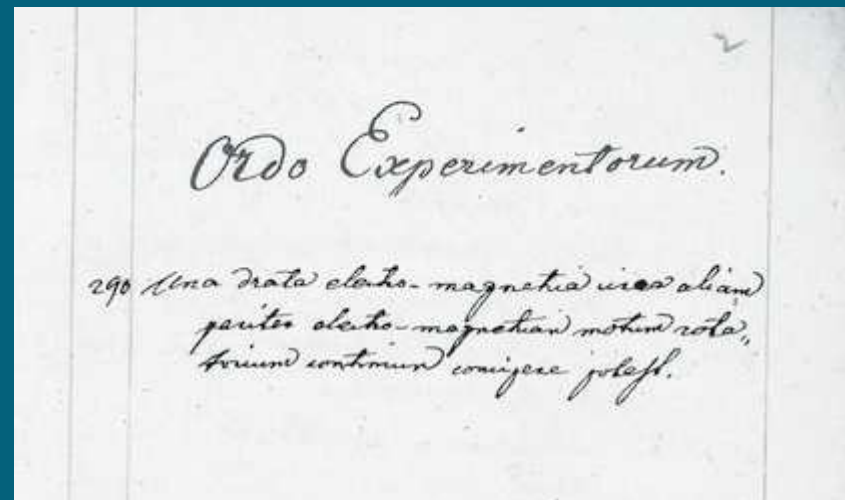 2
Ordo Experimentorum.
290 Una drata electro-magnetica circa aliam
pariter electro-magnetican motum rota„
torium continuun concipere potest.